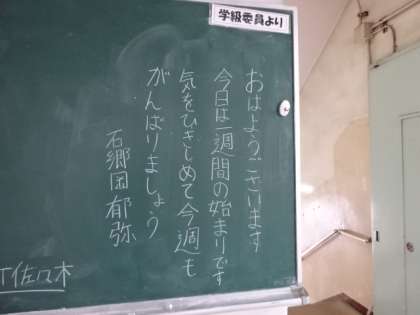 学級委員より
おはようございます
今日は一週間の始まりです
気をひきしめて今週も
がんばりましょう
石郷岡郁弥
佐々木